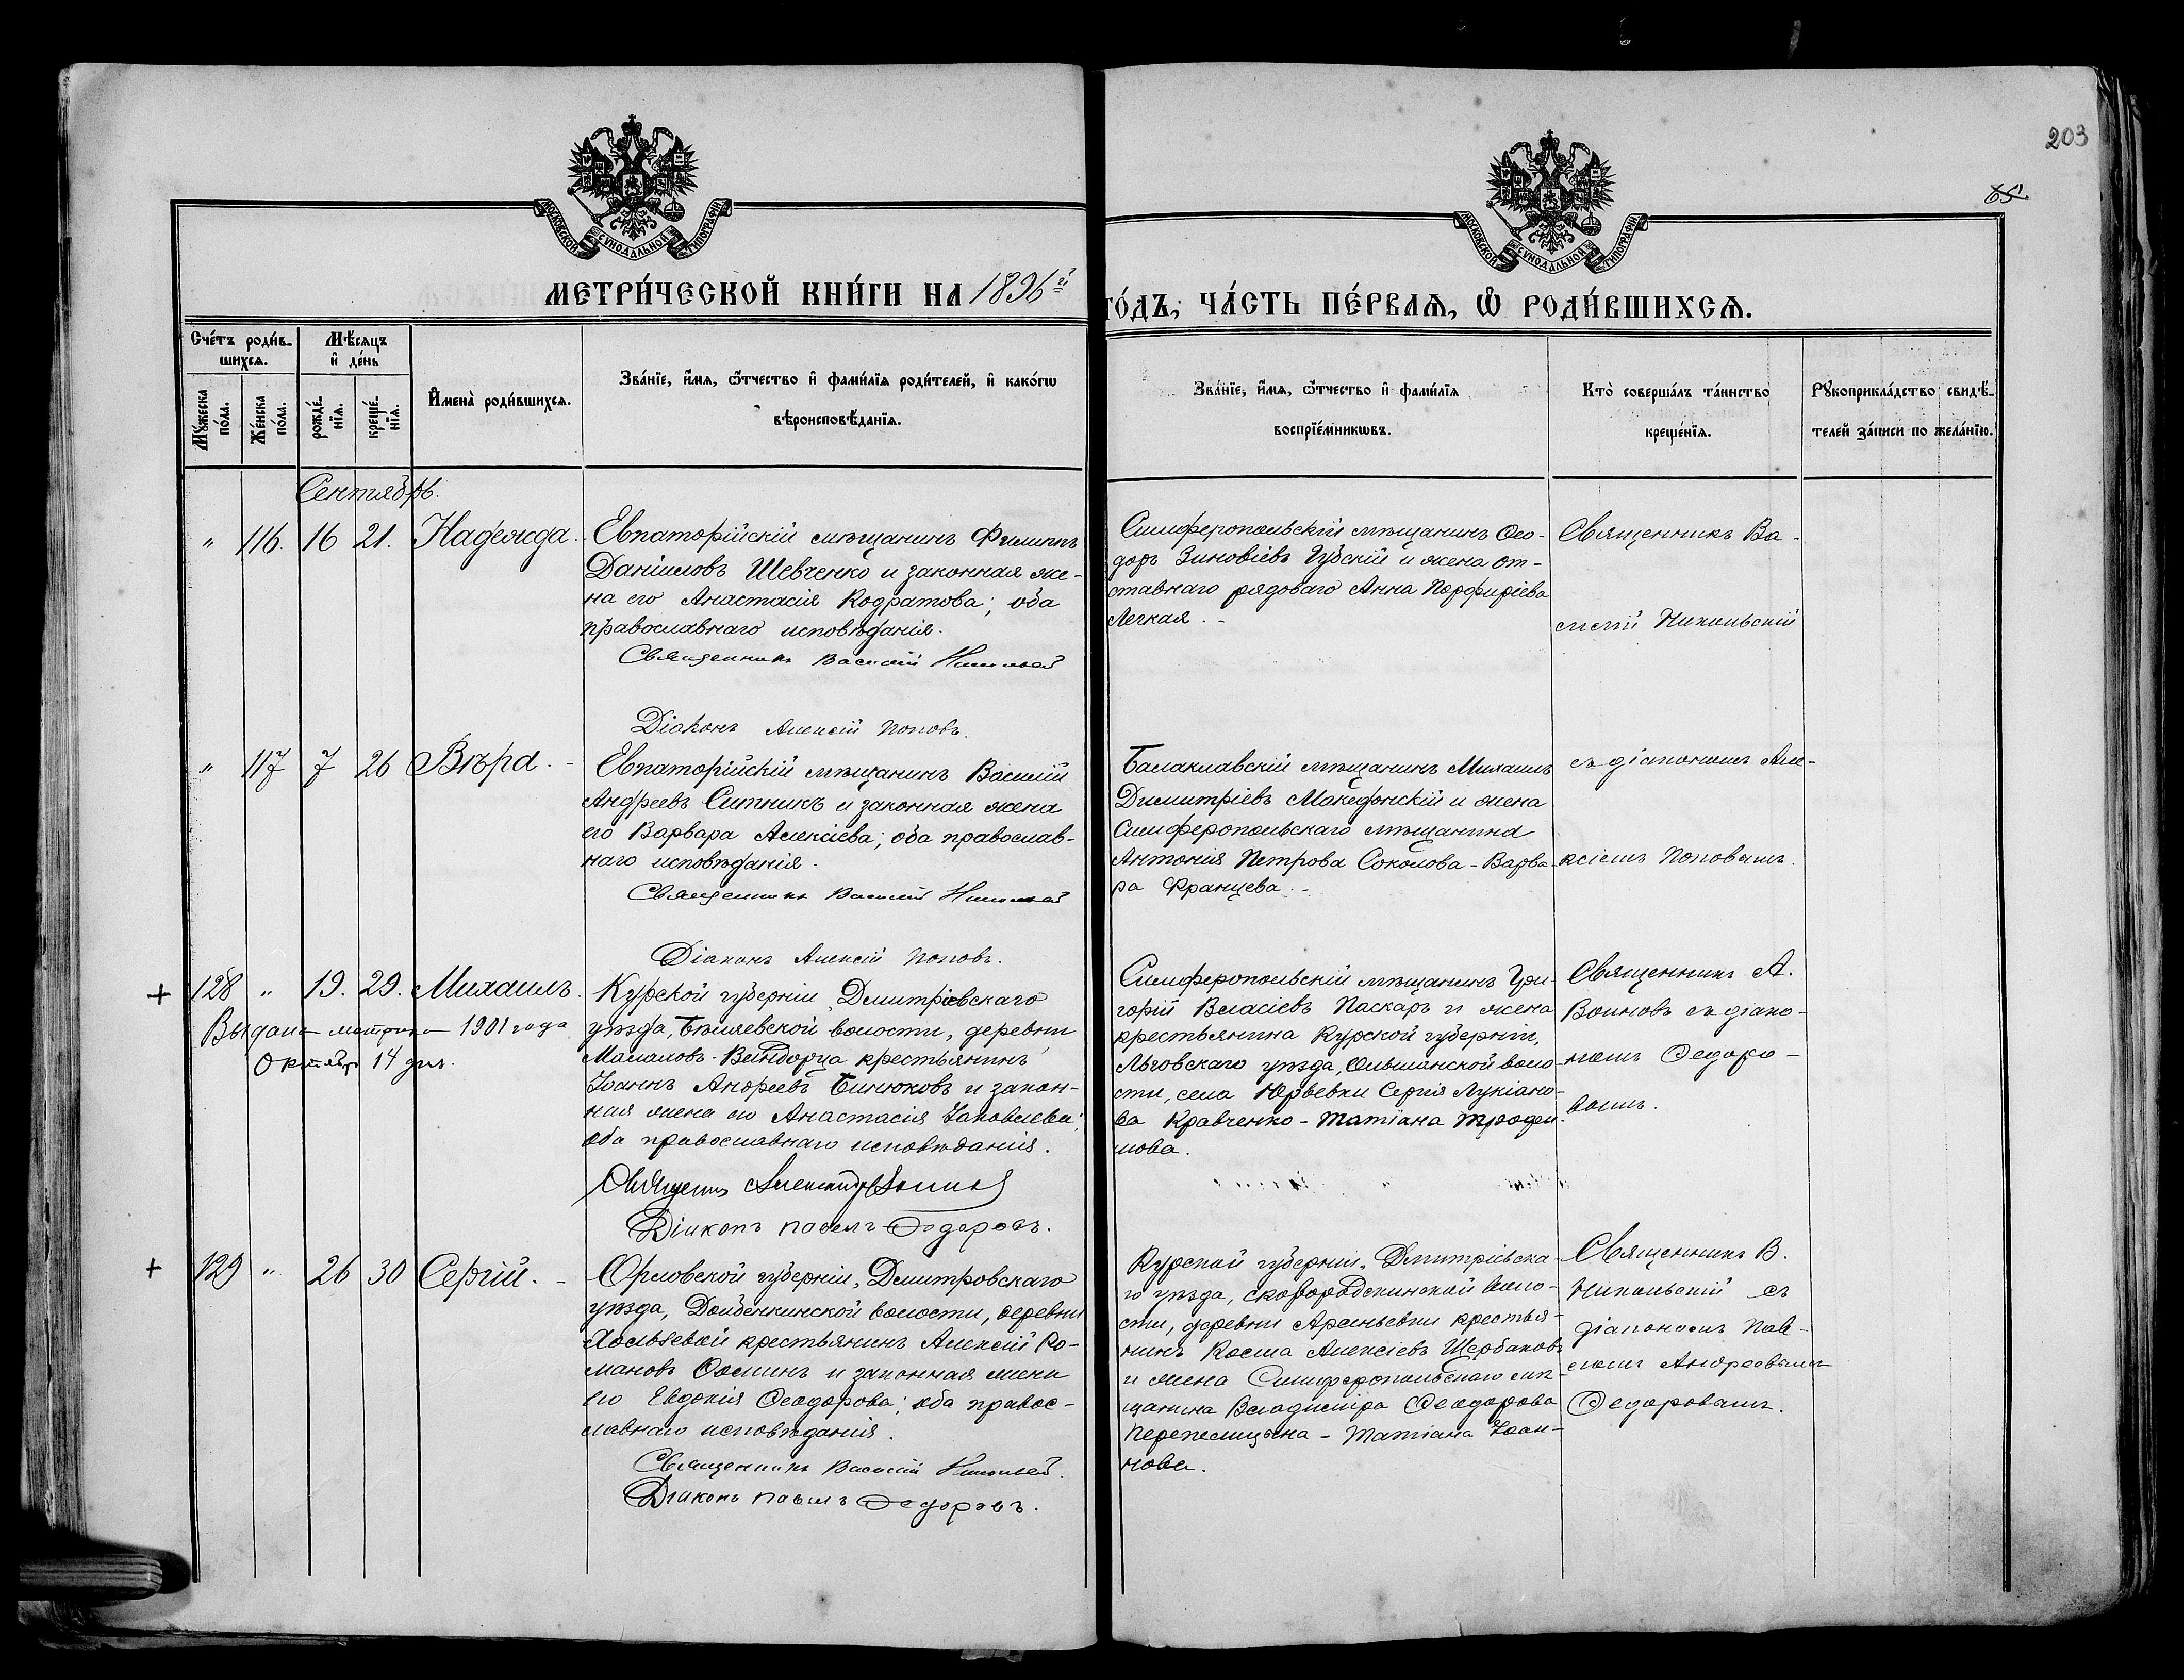 203
65
МОСКОВСКОЙ СѴНОДАЛЬНОЙ ТИПОГРАФІИ
МОСКОВСКОЙ СѴНОДАЛЬНОЙ ТИПОГРАФІИ
МЕТРИ́ЧЕСКОЙ КНИ́ГИ НА 1896й
ГО́ДЪ, ЧА́СТЬ ПЕ́РВАѦ, Ѡ҆ РОДИ́ВШИХСѦ.
Сче́тъ роди́в-
шихсѧ.
Мꙋ́жеска по́ла.
Же́нска по́ла.
Мѣ́сѧцъ
и҆ де́нь
рожде́-
нїѧ.
креще́-
нїѧ.
И҆мена̀ роди́вшихсѧ.
Зва́нїе, и҆́мѧ, ѻ҆́тчество и҆ фами́лїѧ роди́телей, и҆ како́гѡ
вѣроисповѣ́данїѧ.
Зва́нїе, и҆́мѧ, ѻ҆́тчество и҆ фами́лїѧ
воспрїе́мникѡвъ.
Кто̀ соверша́лъ та́инство
креще́нїѧ.
Рꙋкоприкла́дство свидѣ́-
телей за́писи по жела́нїю.
Сентябрь.
„ 116. 16 21. Надежда.
Евпаторійскій мѣщанинъ Филиппъ
Даніиловъ Шевченко и законная же-
на его Анастасія Кодратова; оба
православнаго исповѣданія.
Священникъ Василій Никольскій
Діаконъ Алексій Поповъ.
Симферопольскій мѣщанинъ Ѳео-
доръ Зиновіевъ Губскій и жена от-
ставнаго рядоваго Анна Порфиріева
Легкая. -
Священникъ Ва-
силій Никольскій
„ 117 7 26 Вѣра. -
Евпаторійскій мѣщанинъ Василій
Андреевъ Ситникъ и законная жена
его Варвара Алексіева; оба православ-
наго исповѣданія.
Священникъ Василій Никольскій
Діаконъ Алексій Поповъ.
Балаклавскій мѣщанинъ Михаилъ
Димитріевъ Македонскій и жена
Симферопольскаго мѣщанина
Антонія Петрова Соколова - Варва-
ра Францева. -
съ діакономъ Але-
ксіемъ Поповымъ.
+ 128 „ 19. 29. Михаилъ.
Выдана метрика 1901 года
Октябр 14 дня.
Курской губерніи, Дмитріевскаго
уѣзда, Бѣляевской волости, деревни
крестьянинъ
Іоаннъ Андреевъ Бинюковъ и закон-
ная жена его Анастасія Іаковлева;
оба православнаго исповѣданія.
Священник Александр
Діаконъ Павелъ Ѳедоровъ.
Симферопольскій мѣщанинъ Гри-
горій Власіевъ Паскаръ и жена
крестьянина Курской губерніи,
Льговскаго уѣзда, Ольшанской воло-
сти, села Юрьевки Сергія Лукіано-
ва Кравченко - Татіана Трофи-
мова.
Священникъ А.
Воиновъ съ діако-
номъ Ѳедоро-
вымъ.
+ 129 „ 26 30 Сергій. -
Орловской губерніи, Дмитровскаго
уѣзда, волости, деревни
крестьянинъ Алексій Ро-
мановъ Ѳоминъ и законная жена
его Евдокія Ѳеодорова; оба правос-
лавнаго исповѣданія.
Священникъ Василій Никольскій.
Діаконъ Павелъ Ѳедоровъ.
Курской губерніи, Дмитріевска-
го уѣзда, воло-
сти, деревни Арсеньевки крестья-
нинъ Косма Алексіевъ Щербаковъ
и жена Симферопольскаго мѣ-
щанина Владиміра Ѳеодорова
Перепелицына - Татіана Іоан-
нова.
Священникъ В.
Никольскій съ
діакономъ Пав-
ломъ Андреевымъ
Ѳедоровымъ.